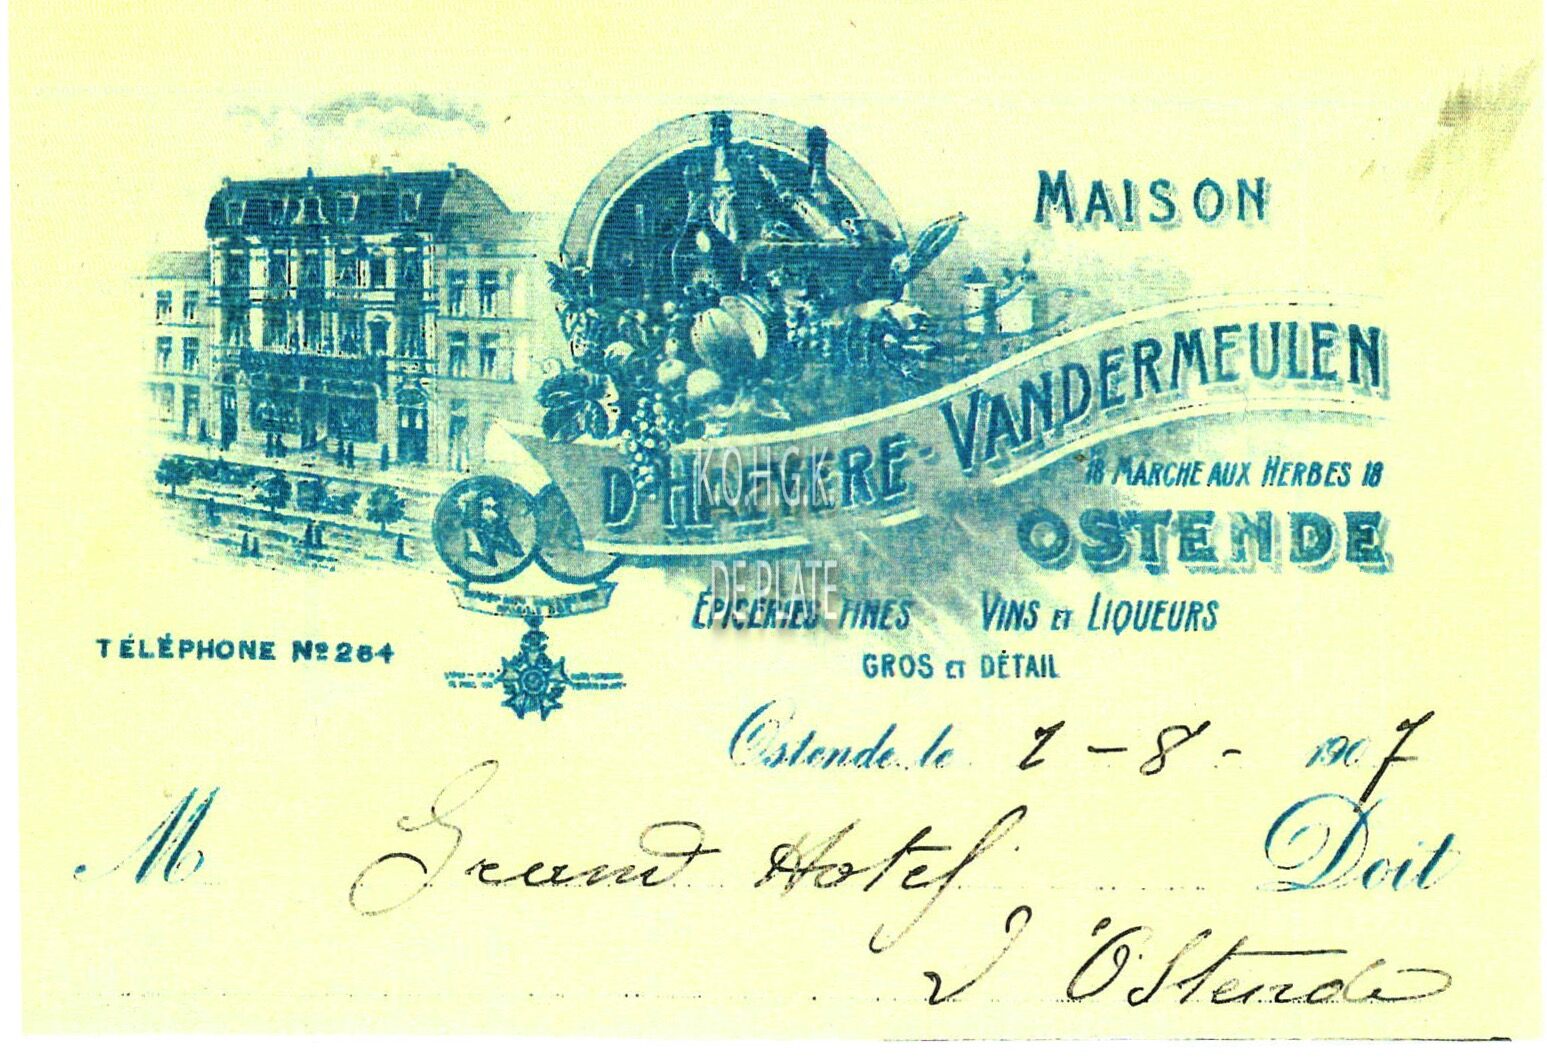 MAISON
D'HONGERE-VANDERMEULEN
18 MARCHE AUX HERBES 18
OSTENDE
K.O.H.G.K.
DE PLATE
EPICERIES FINES VINS ET LIQUEURS
GROS ET DÉTAIL
TÉLÉPHONE Nº 264
Ostende le 1-8-1907
M Grand Hotel Doit
d'Ostende